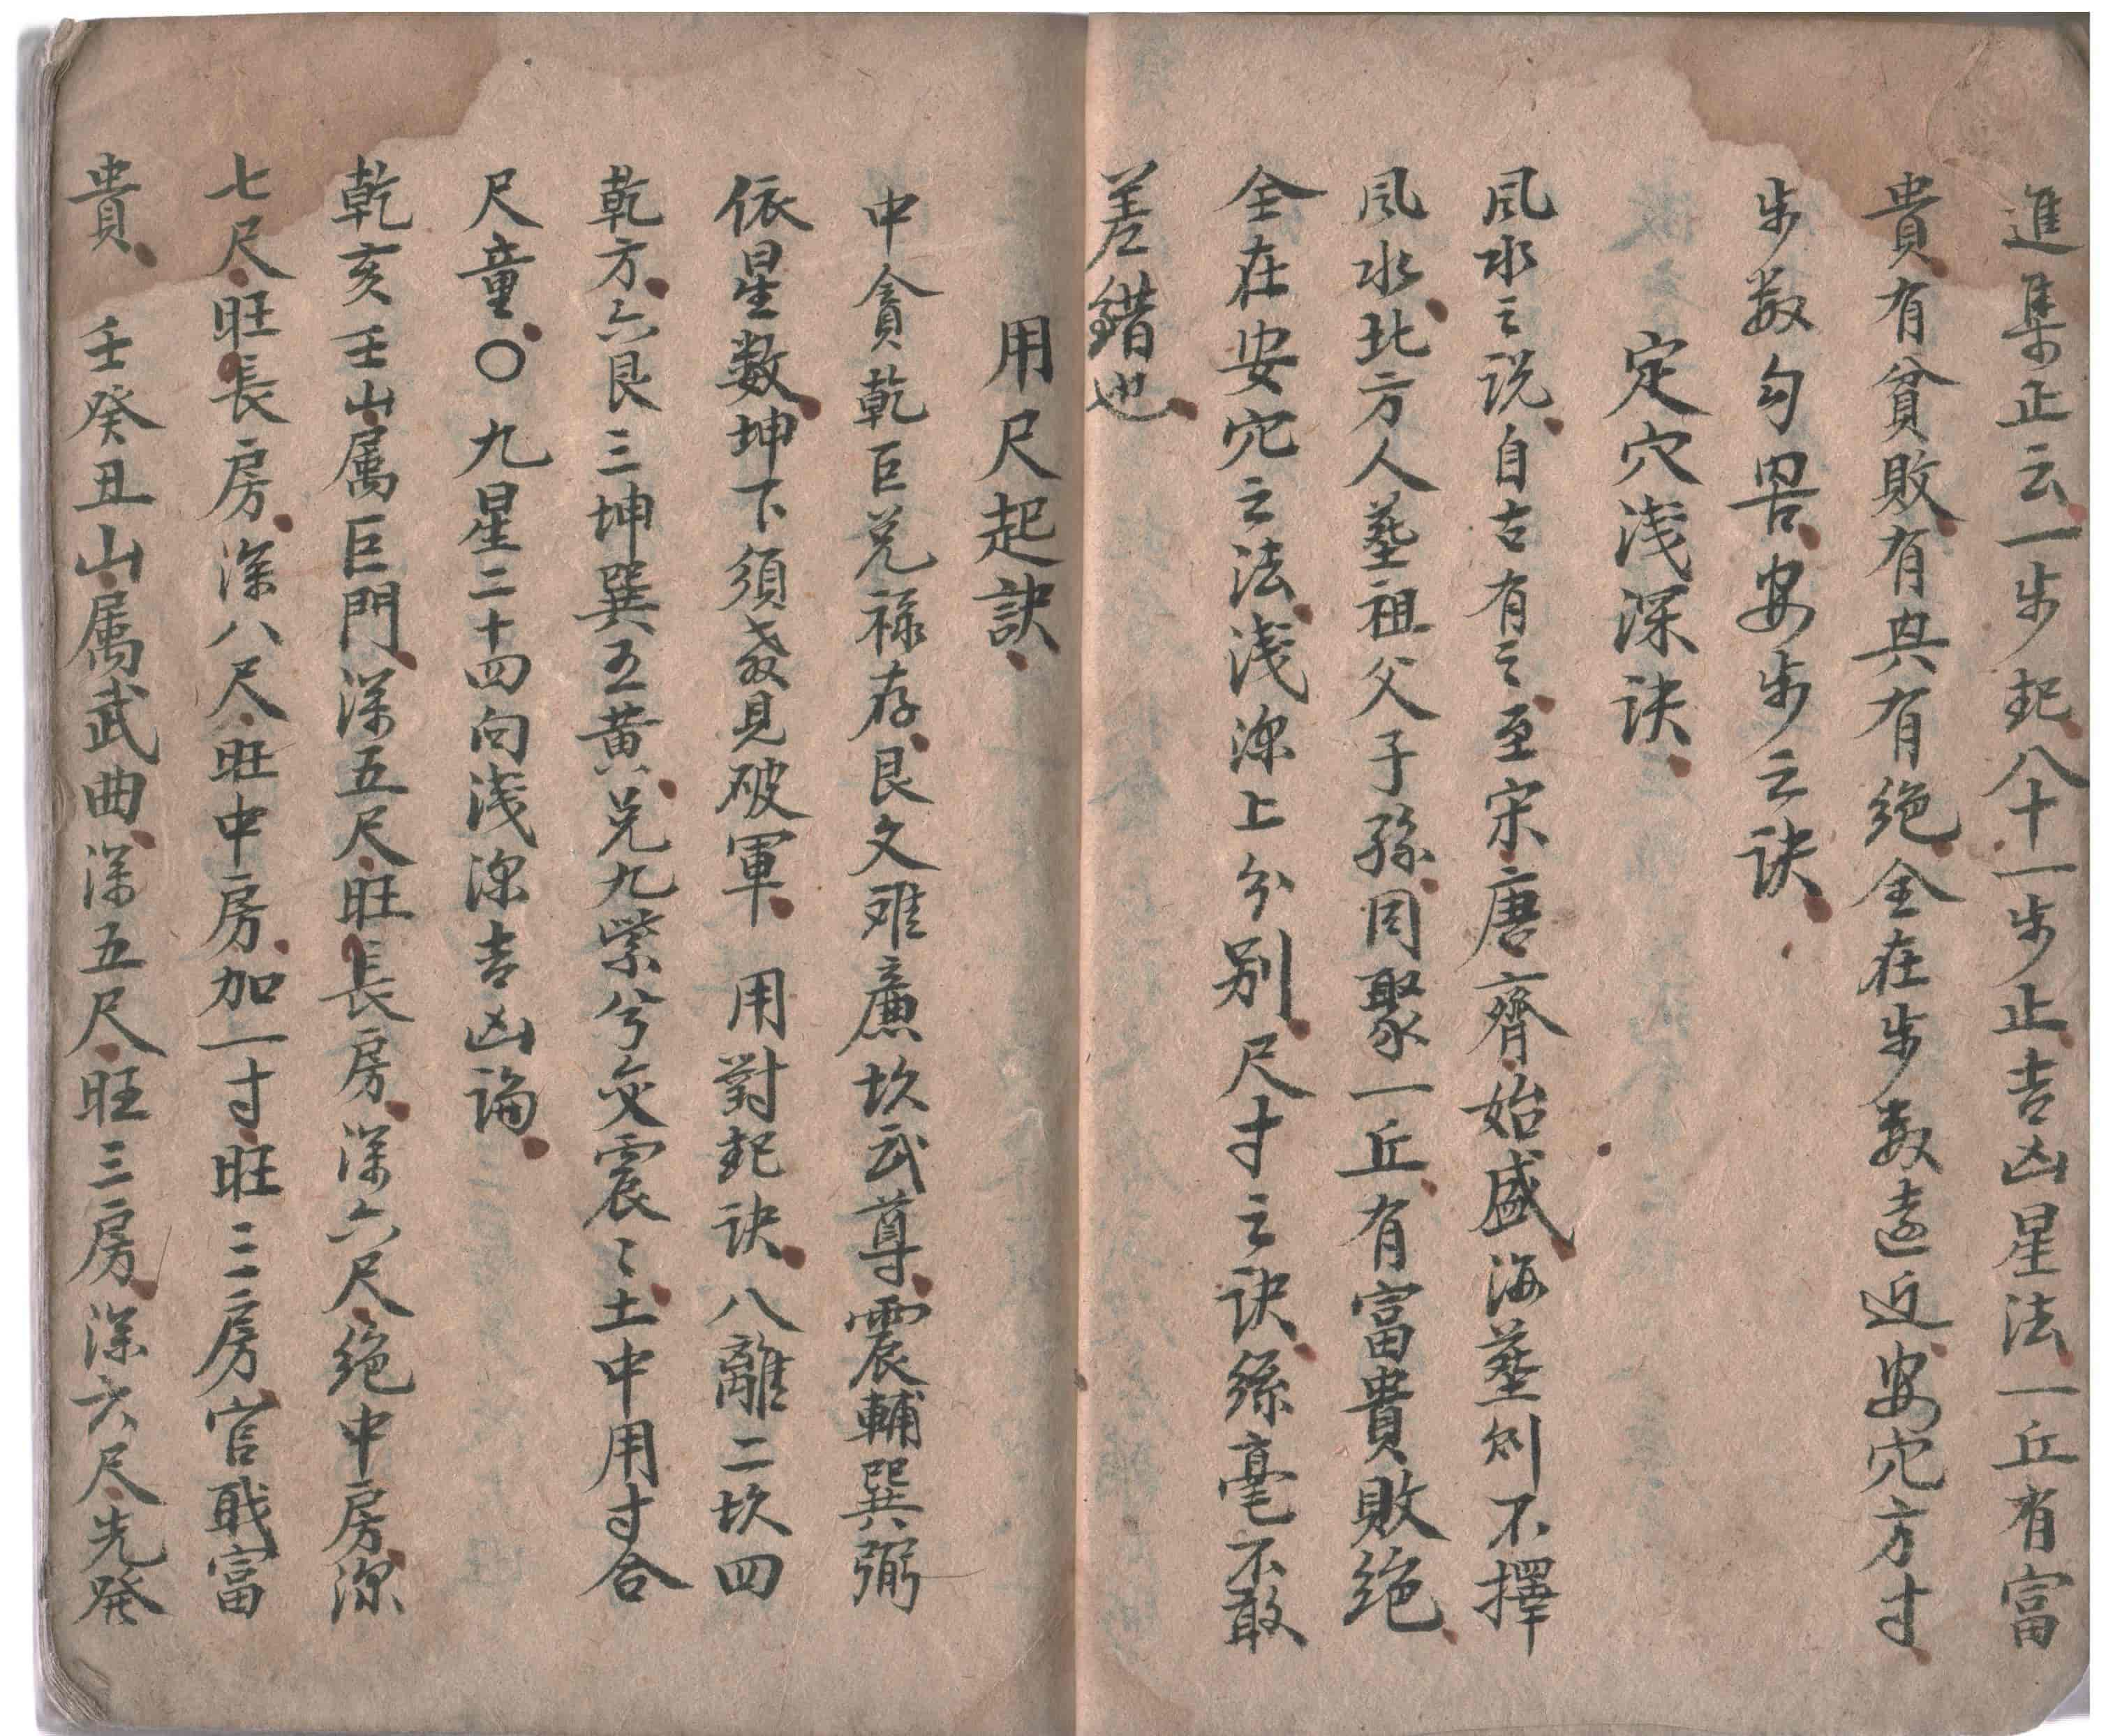 進集止云一步起八十一步止吉凶星法一丘有富
貴有貧敗有興有绝全在步数遠近安穴方寸
步数勾畧安步之诀
定穴浅深诀
风水之说自古有之至宋唐齊始盛海塟则不擇
风水北方人塟祖父子孫同聚一丘有富貴敗绝
全在安穴之法浅深上分别尺寸之诀絲毫不敢
差錯也
用尺起訣
中貪乾巨兑禄存艮文难廉坎武尊震輔巽弼
依星数坤下須教見破軍用對起诀八離二坎四
乾方六艮三坤巽五黄兑九紫兮交震〻土中用寸合
尺童〇九星二十四向浅深吉凶論
乾亥壬山属巨門深五尺旺長房深六尺绝中房深
七尺旺長房深八尺旺中房加一寸旺三房官戝富
貴　壬癸丑山属武曲深五尺旺三房深六尺先発